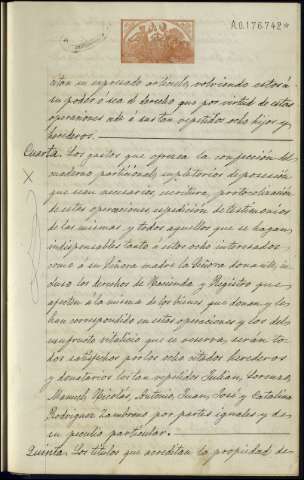 A.0.176.742*
citan su expresado artículo, volviendo estará
su poder ó sea el derecho que por virtud de estas
operaciones nda á sus tan repetidos ocho hijos y
herederos.
Cuarta. Los gastos que ofrezca la confección del
cuaderno particional, supletorios de posesión
que sean necesarios, escritura, protocolización
de estas operaciones, expedición de testimonios
de las mismas y todos aquellos que se hagan
indispensables tanto á estos ocho interesados
como á su Señora madre la Señora donante, in-
cluso los derechos de Hacienda y Registro que
afecten á la misma de los bienes que donan y les
han correspondido en estas operaciones y los del
usufructo vitalicio que se reserva, serán to-
dos satisfechos por los ocho citados herederos
y donatarios los tan repetidos Julian, Lorenzo,
Manuel, Nicolás, Antonio, Juan, José y Catalina
Rodriguez Zambrano por partes iguales y de
su peculio particular.
Quinta. Los títulos que acreditan la propiedad de